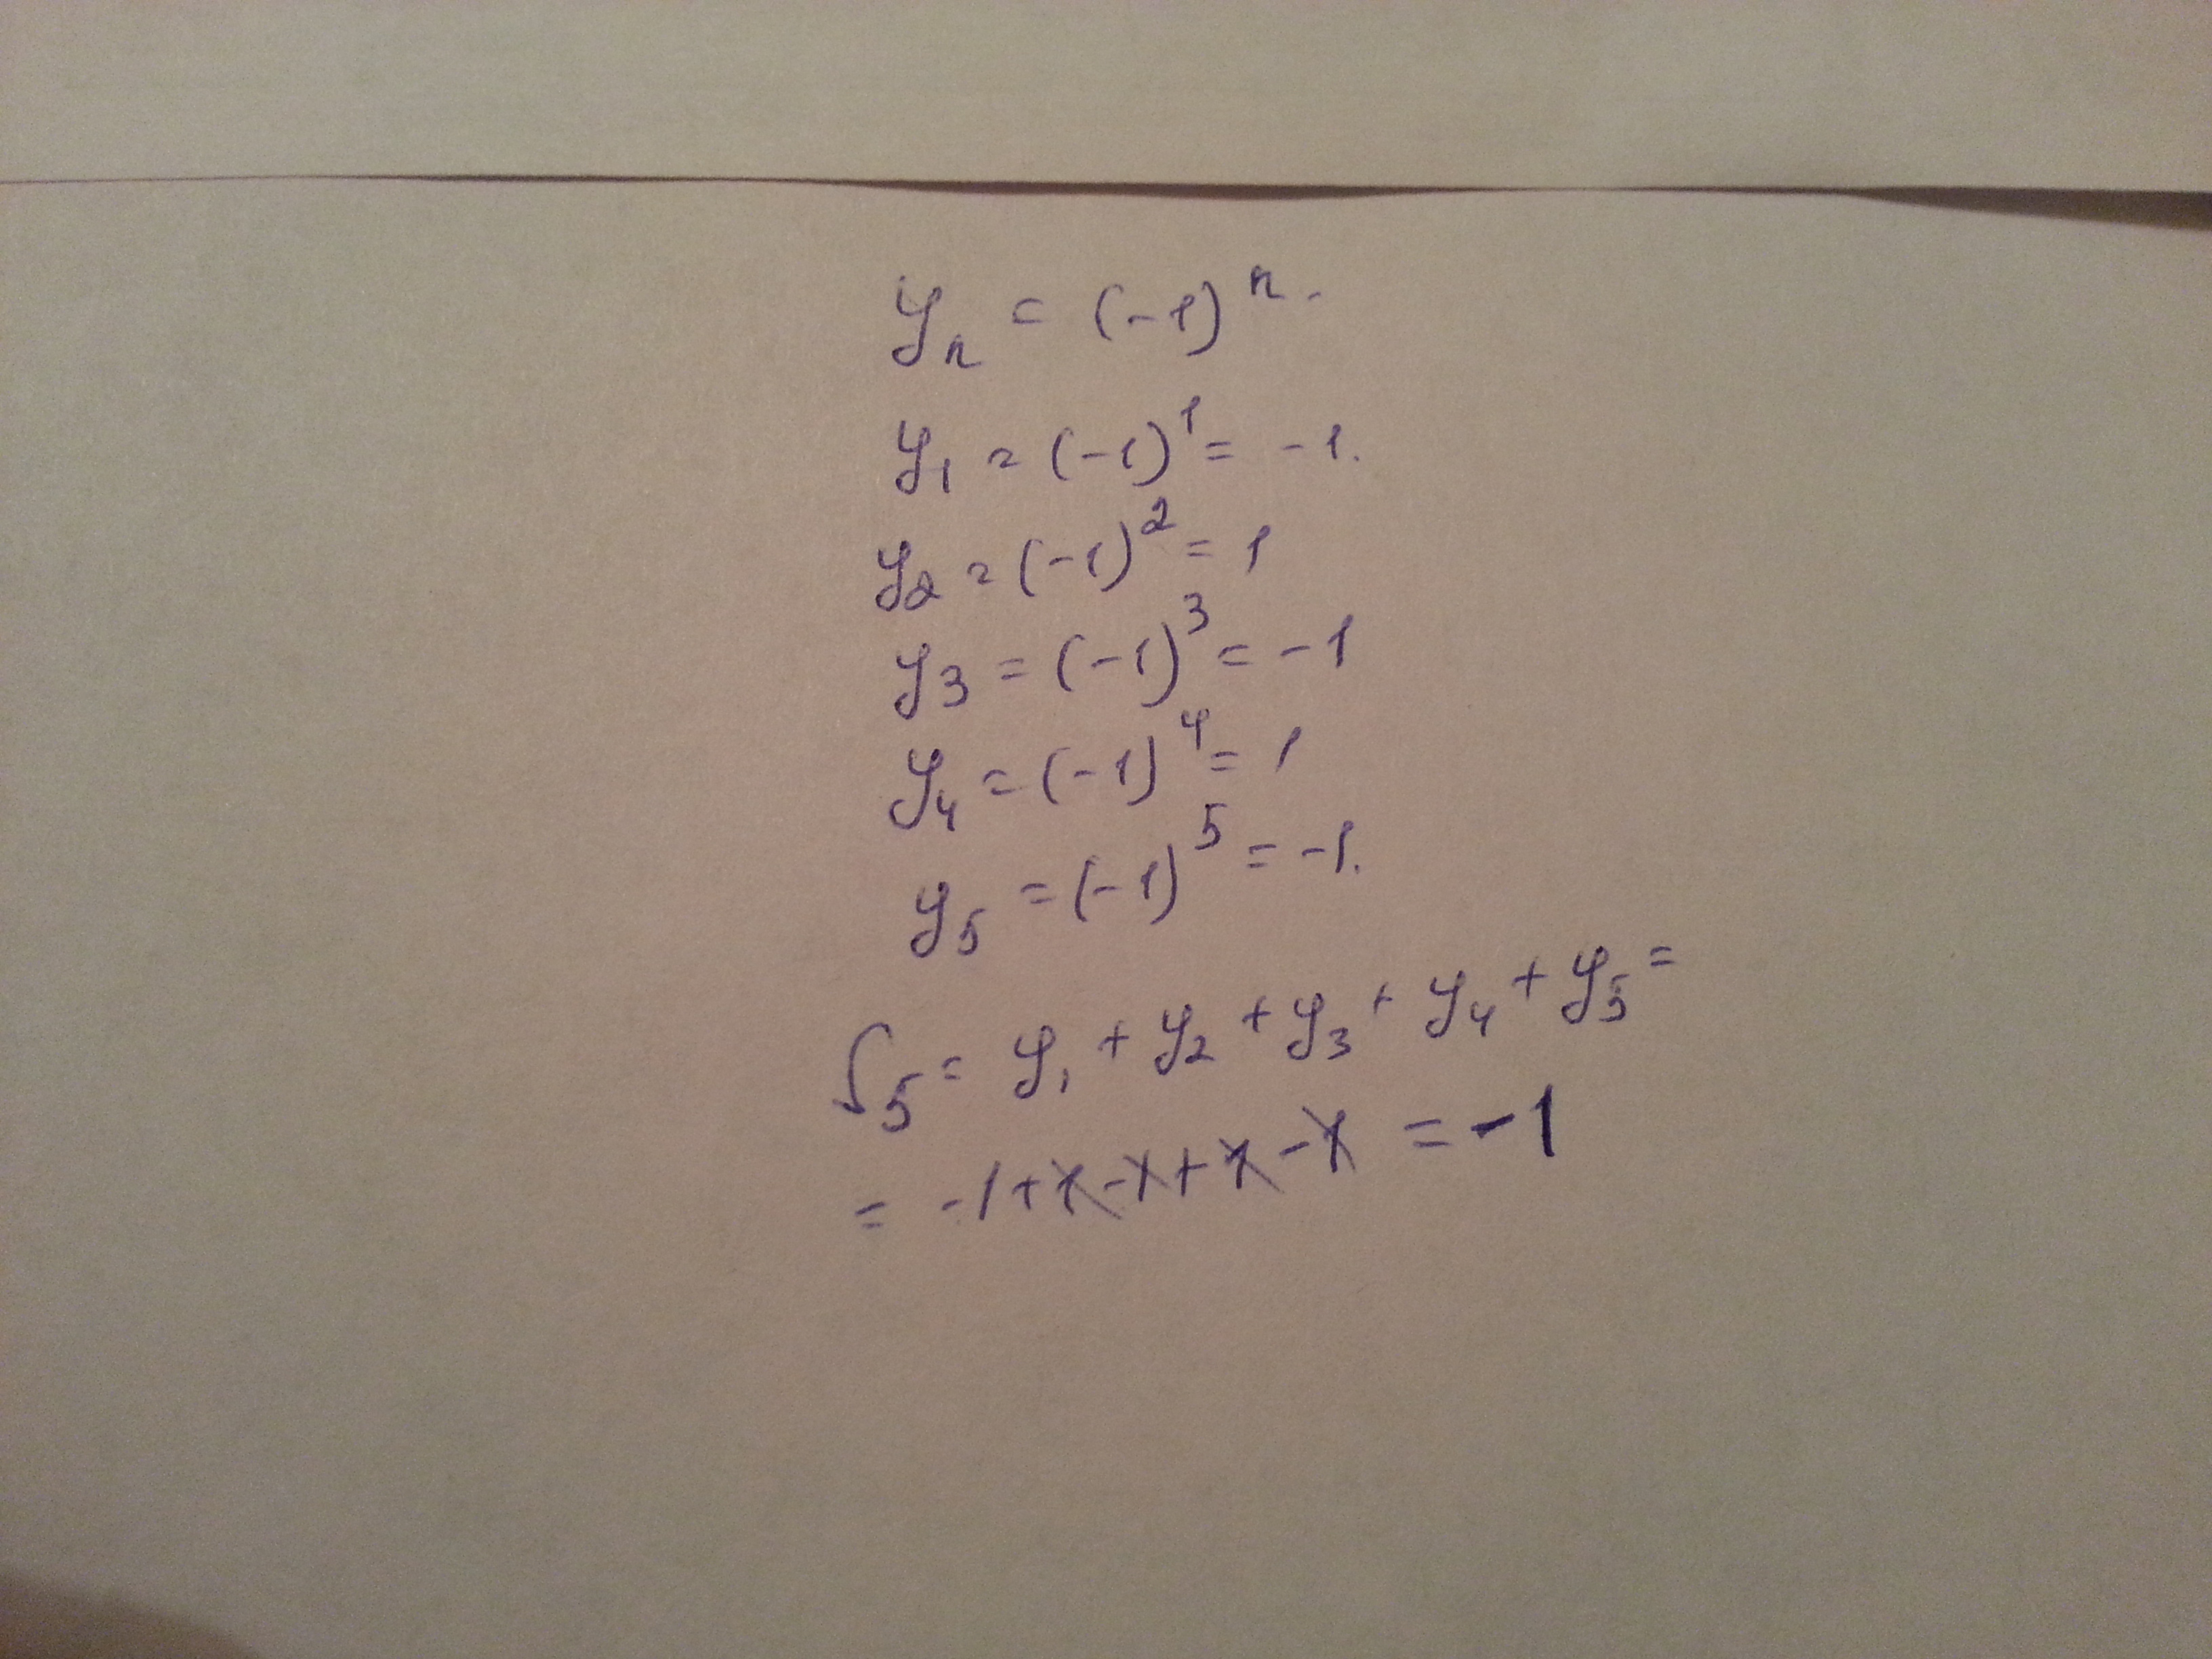 yₙ = (-1)ⁿ.
y₁ = (-1)¹ = -1.
y₂ = (-1)² = 1
y₃ = (-1)³ = -1
y₄ = (-1)⁴ = 1
y₅ = (-1)⁵ = -1.
S₅ = y₁ + y₂ + y₃ + y₄ + y₅ =
= -1+1-1+1-1 = -1